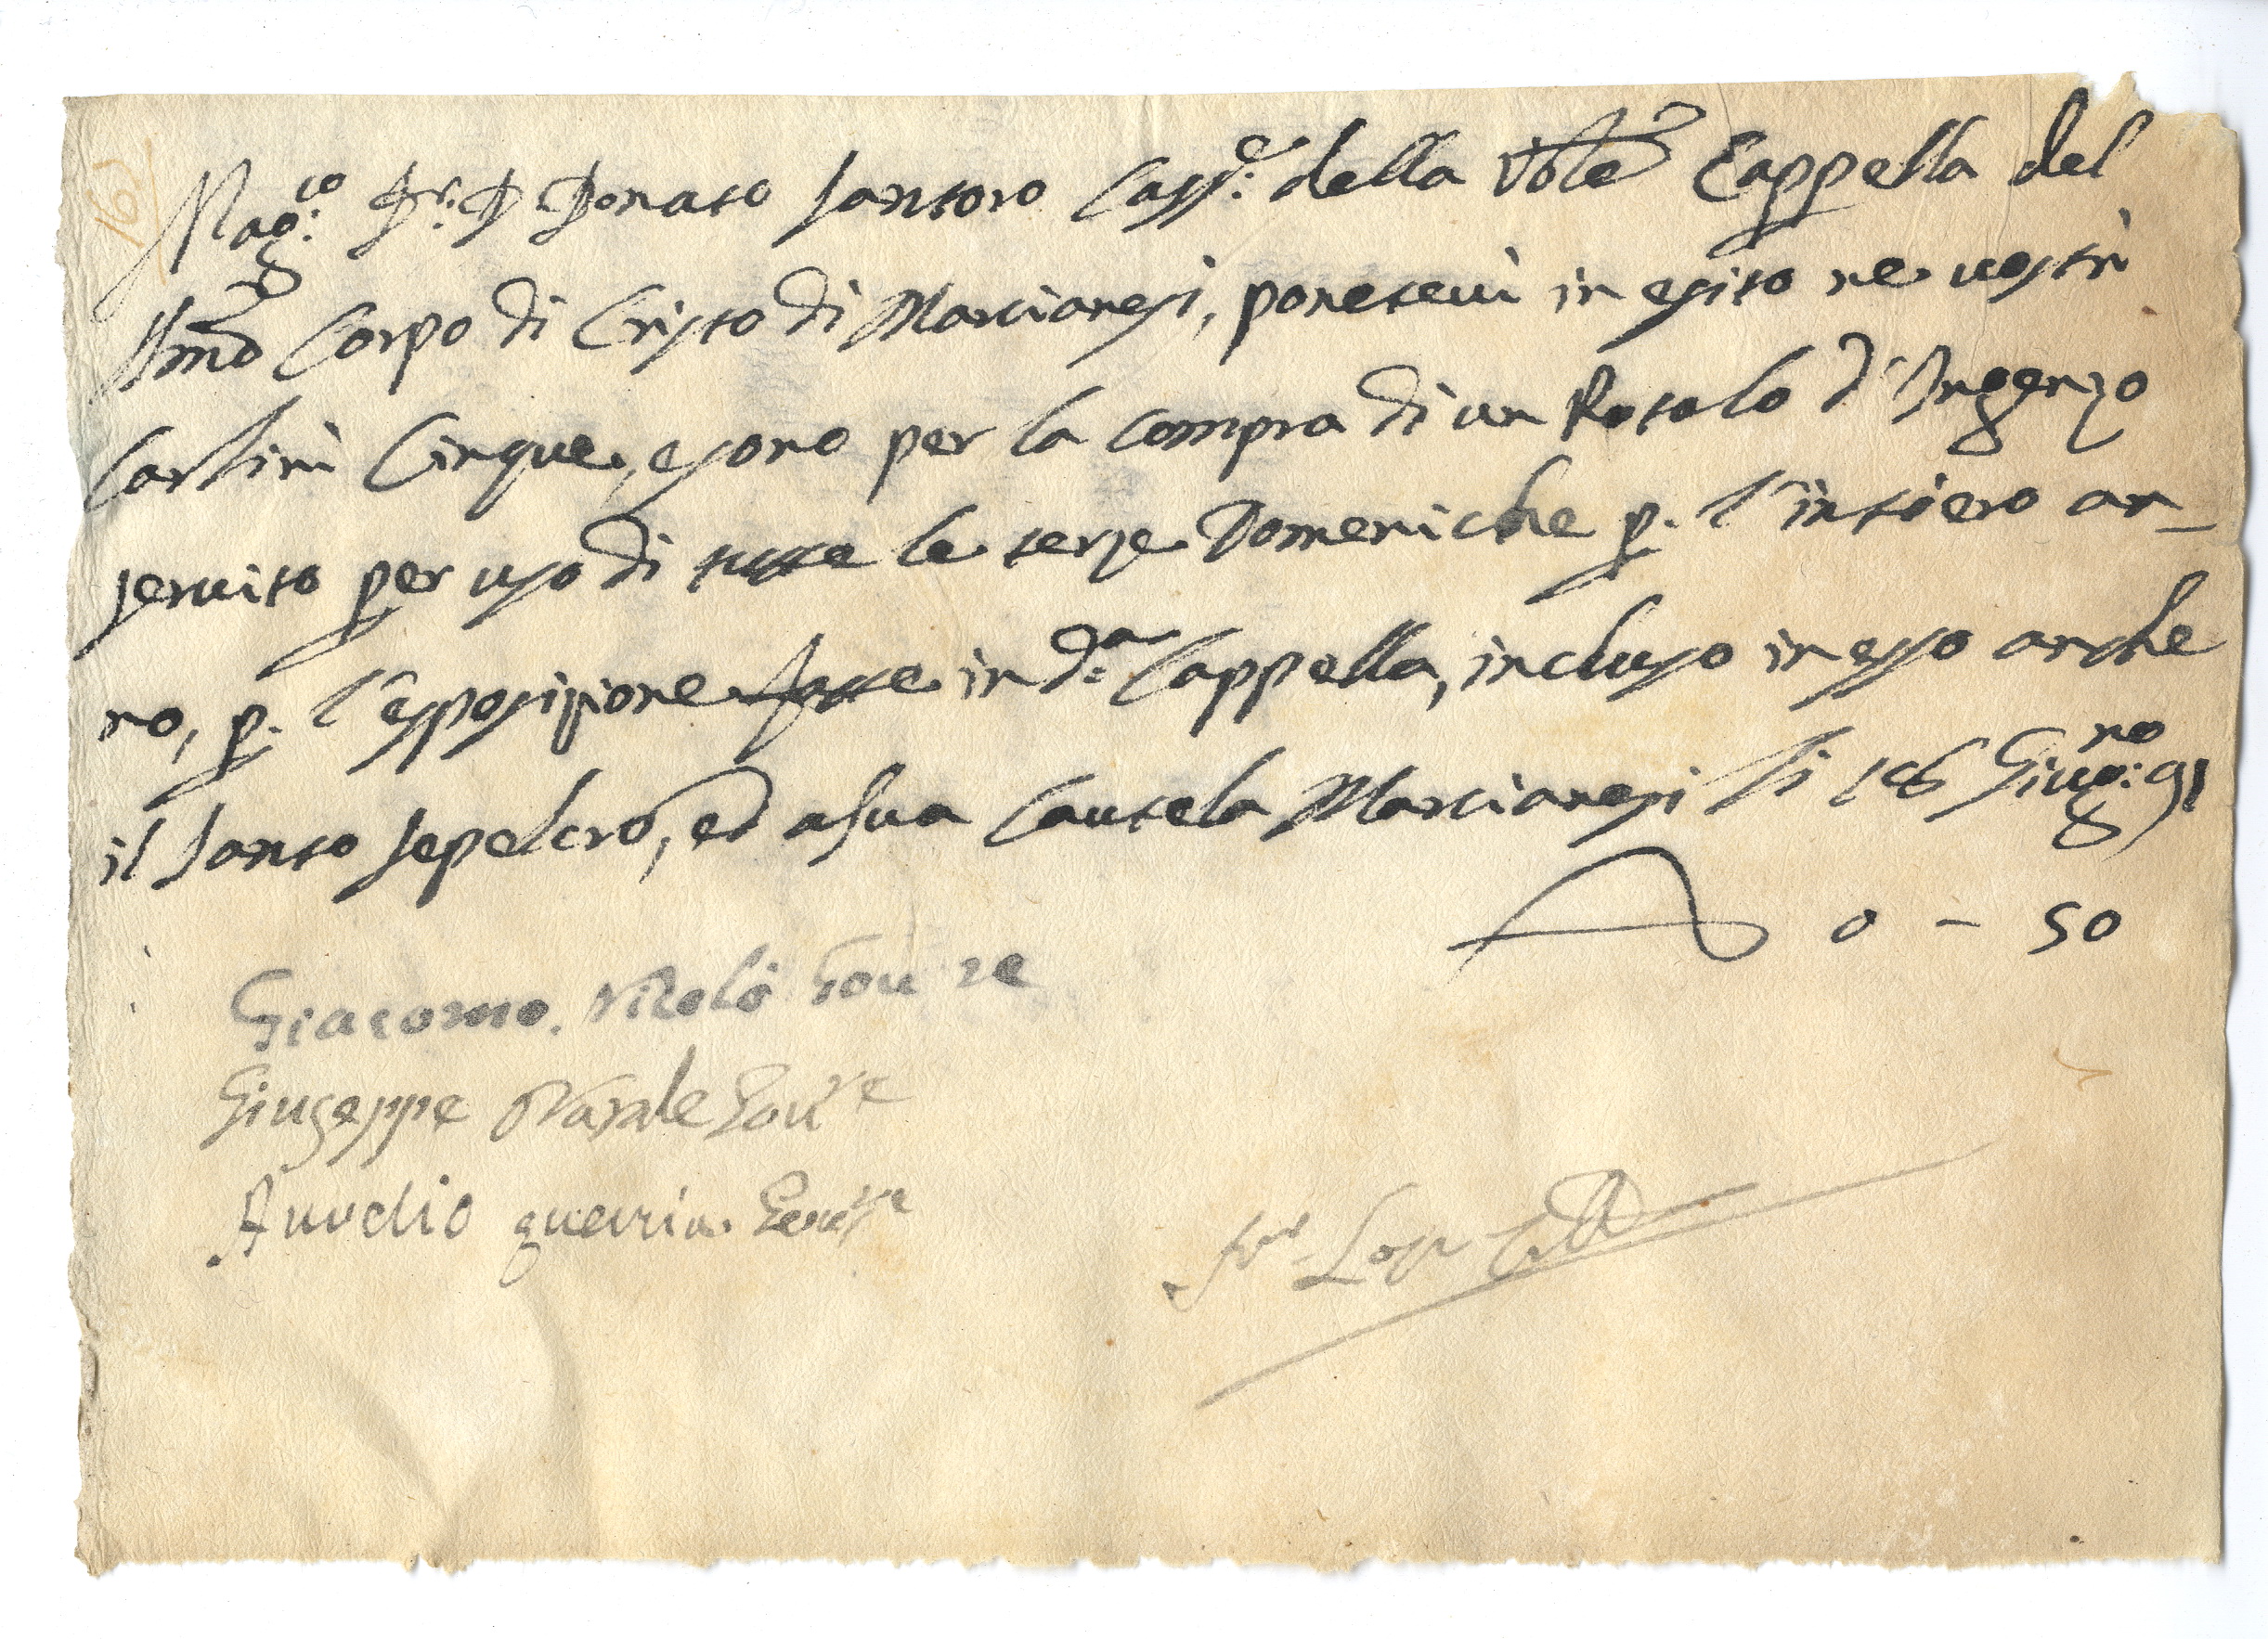 Mag:co Dr. D Donato Santoro Cass:e della Vble Cappella del
SSmo Corpo di Cristo di Marcianesi, ponetevi in esito ne vostri
Carlini Cinque, e sono per la compra di un Rotolo d'Ingenzo
servito per uso di tutte le terze Domeniche p. l'intiero an_
no, p. l'esposizione fatte in d:a Cappella, incluso in esso anche
il Santo Sepolcro, ed a sua Cautela Marcianesi li Giug:no 91
0 - 50
Giacomo. Nicolò Gou re
Giuseppe Natale Gou.re
Aurelio guerria. Gou.re